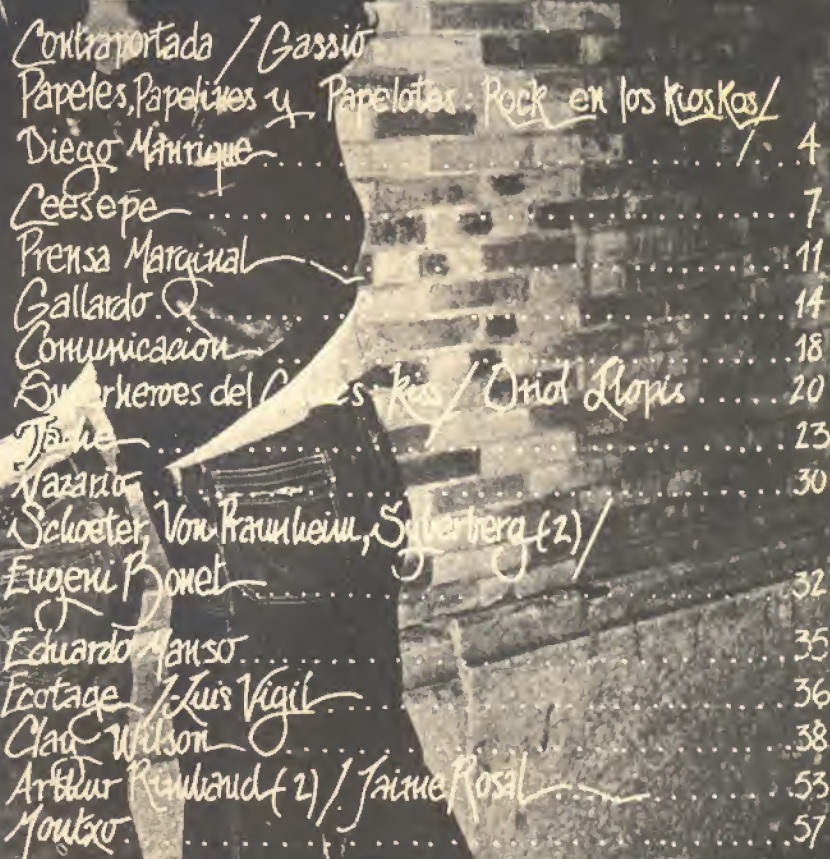 Contraportada / Gassió
Papeles, Papelines y Papelotes: Rock en los Kioskos /
Diego Manrique 4
Ceesepe 7
Prensa Marginal 11
Gallardo 14
Comunicacion 18
Superheroes del / Oriol Llopis 20
23
Nazario 30
Schoeter, Von Praunheim, Syberberg (2) /
Eugeni Bonet 32
Eduardo Manso 35
Ecotage / Luis Vigil 36
Clay Wilson 38
Arthur Rimbaud (2) / Jaime Rosal 53
Montxo 57